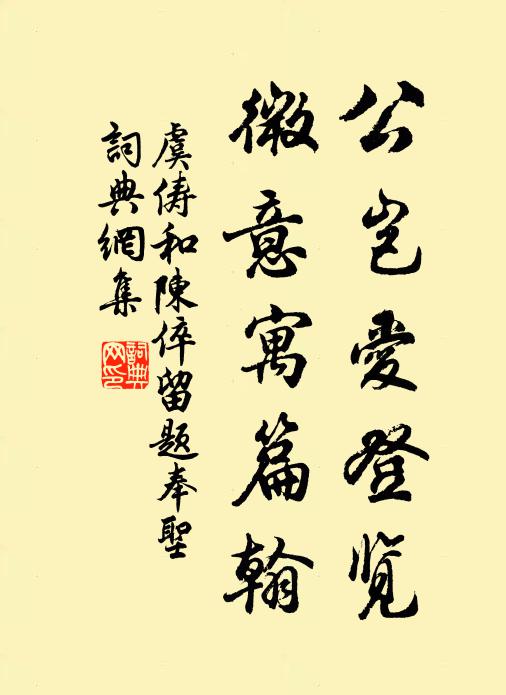 公岂爱登览
微意寓篇翰
虞俦和陈倅留题奉聖
詞典網集
詞典网印